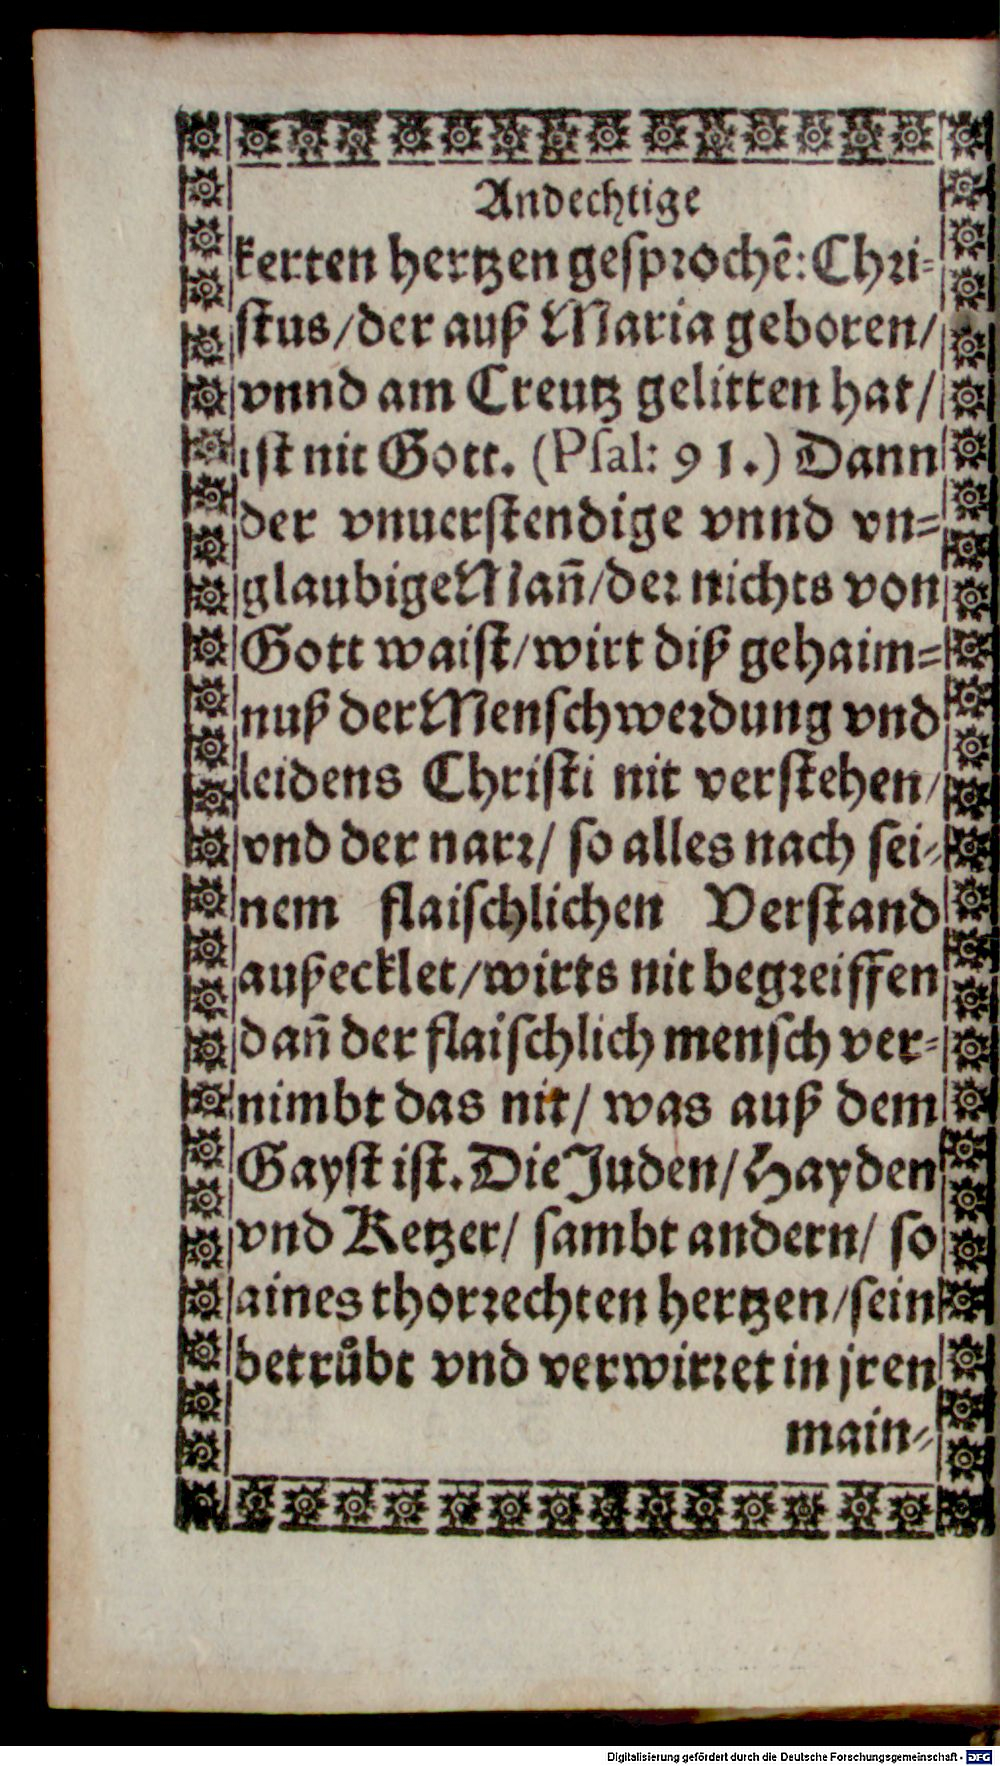 Andechtige
kerten hertzen gesprochē: Chri⸗
stus/der auß Maria geboren/
vnnd am Creutz gelitten hat/
ist nit Gott. (Psal: 91.) Dann
der vnuerstendige vnnd vn⸗
glaubige Mañ/der nichts von
Gott waist/wirt diß gehaim⸗
nuß der Menschwerdung vnd
leidens Christi nit verstehen/
vnd der narr/ so alles nach sei⸗
nem flaischlichen Verstand
außecklet/wirts nit begreiffen
dañ der flaischlich mensch ver⸗
nimbt das nit/ was auß dem
Gayst ist. Die Juden/Hayden
vnd Ketzer/ sambt andern/ so
aines thorrechten hertzen/sein
betrůbt vnd verwirret in jren
main⸗
Digitalisierung gefördert durch die Deutsche Forschungsgemeinschaft - DFG